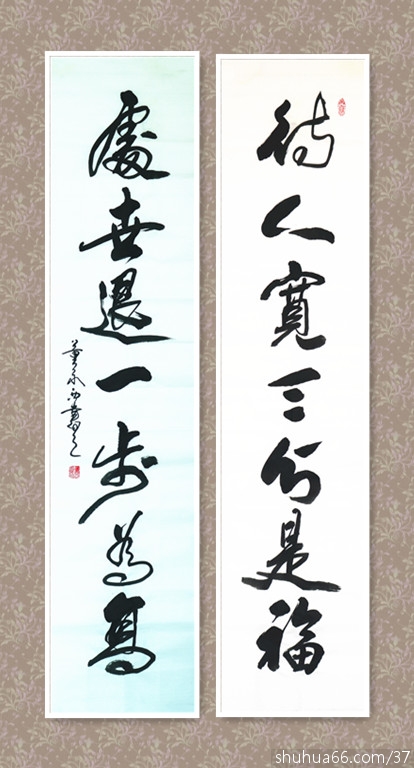 待人寬三分是福
處世退一步為高
shuhua66.com/37